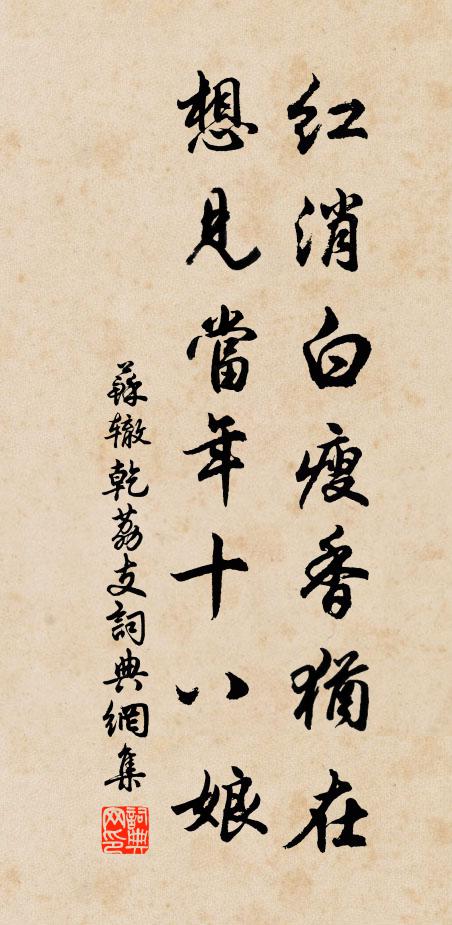 红消白瘦香猶在
想見當年十八娘
蘇辙乾荔支詞典網集
詞典网印